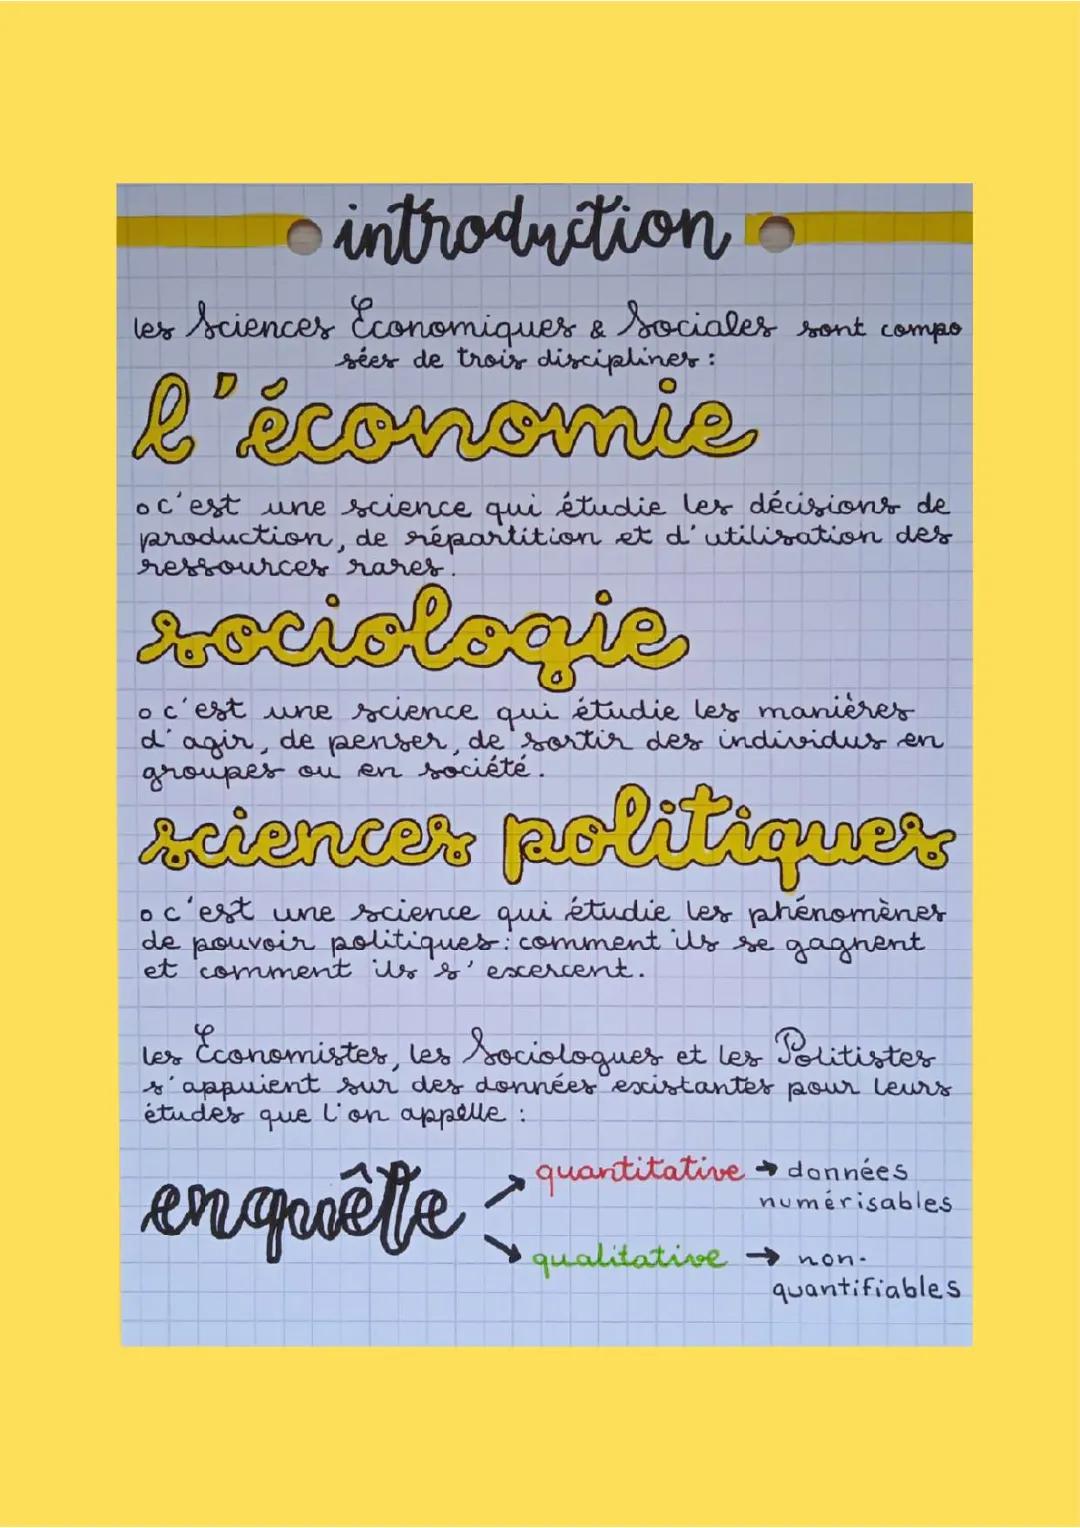 introduction
les Sciences Économiques & Sociales sont compo
sées de trois disciplines :
l'économie
o c'est une science qui étudie les décisions de
production, de répartition et d'utilisation des
ressources rares.
sociologie
o c'est une science qui étudie les manières
d'agir, de penser, de sortir des individus en
groupes ou en société.
sciences politiques
o c'est une science qui étudie les phénomènes
de pouvoir politiques : comment ils se gagnent
et comment ils s'excercent.
les Économistes, les Sociologues et les Politistes
s'appuient sur des données existantes pour leurs
études que l'on appelle :
enquête
quantitative → données
numérisables
qualitative → non-
quantifiables